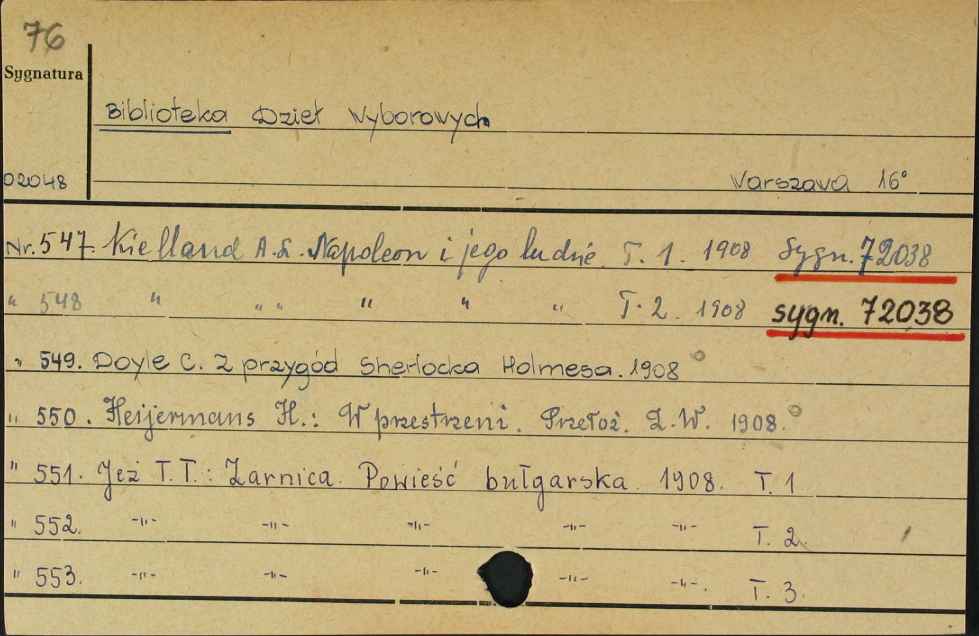 76
Sygnatura
Biblioteka Dzieł Wyborowych
02048
Warszawa 16°
Nr. 547. Kielland A.L. Napoleon i jego ludzie. T. 1. 1908 Sygn. 72038
" 548 " " " " " " T. 2. 1908 sygn. 72038
" 549. Doyle C. Z przygód Sherlocka Holmesa. 1908
" 550. Heijermans H.: W przestrzeni. Przełoż. Z. W. 1908.
" 551. Jeż T.T.: Zarnica. Powieść bułgarska. 1908. T. 1
" 552. -"- -"- -"- -"- -"- T. 2.
" 553. -"- -"- -"- -"- -"-. T. 3.